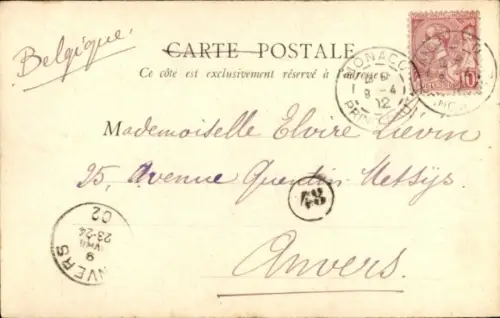 Belgique
CARTE POSTALE
Ce côté est exclusivement réservé à l'adresse
MONACO
8 - 4
12
10
Mademoiselle Elvire Lievin
25, Avenue Quentin Metsys
Anvers.
02
23-24
9